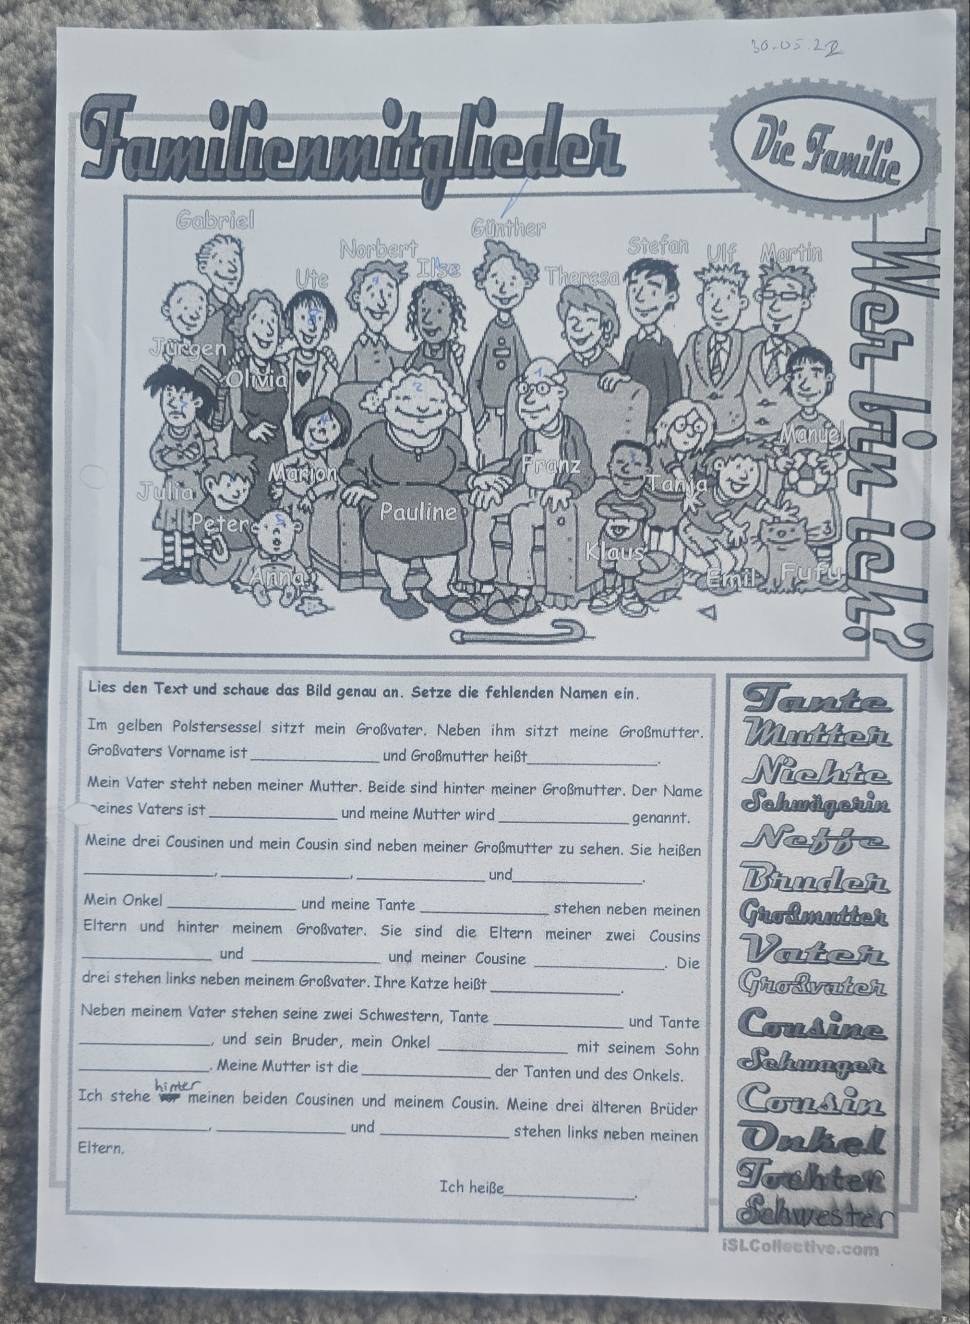 30.05.22
Familienmitglieder
Die Familie
Wer bin ich?
Gabriel
Günther
Norbert
Ilse
Stefan
Ulf
Martin
Ute
Theresa
Jürgen
Olivia
Manuel
Marion
Franz
Tanja
Julia
Peter
Pauline
Klaus
Anna
Emil
Fufu
Lies den Text und schaue das Bild genau an. Setze die fehlenden Namen ein.
Im gelben Polstersessel sitzt mein Großvater. Neben ihm sitzt meine Großmutter.
Großvaters Vorname ist ____________ und Großmutter heißt____________.
Mein Vater steht neben meiner Mutter. Beide sind hinter meiner Großmutter. Der Name
eines Vaters ist ____________ und meine Mutter wird ____________ genannt.
Meine drei Cousinen und mein Cousin sind neben meiner Großmutter zu sehen. Sie heißen
____________, ____________, ____________ und____________.
Mein Onkel ____________ und meine Tante ____________ stehen neben meinen
Eltern und hinter meinem Großvater. Sie sind die Eltern meiner zwei Cousins
____________ und ____________ und meiner Cousine ____________. Die
drei stehen links neben meinem Großvater. Ihre Katze heißt ____________.
Neben meinem Vater stehen seine zwei Schwestern, Tante ____________ und Tante
____________, und sein Bruder, mein Onkel ____________ mit seinem Sohn
____________. Meine Mutter ist die ____________ der Tanten und des Onkels.
Ich stehe hinter meinen beiden Cousinen und meinem Cousin. Meine drei älteren Brüder
____________, ____________ und ____________ stehen links neben meinen
Eltern.
Ich heiße____________.
Tante
Mutter
Nichte
Schwägerin
Neffe
Bruder
Großmutter
Vater
Großvater
Cousine
Schwager
Cousin
Onkel
Tochter
Schwester
iSLCollective.com